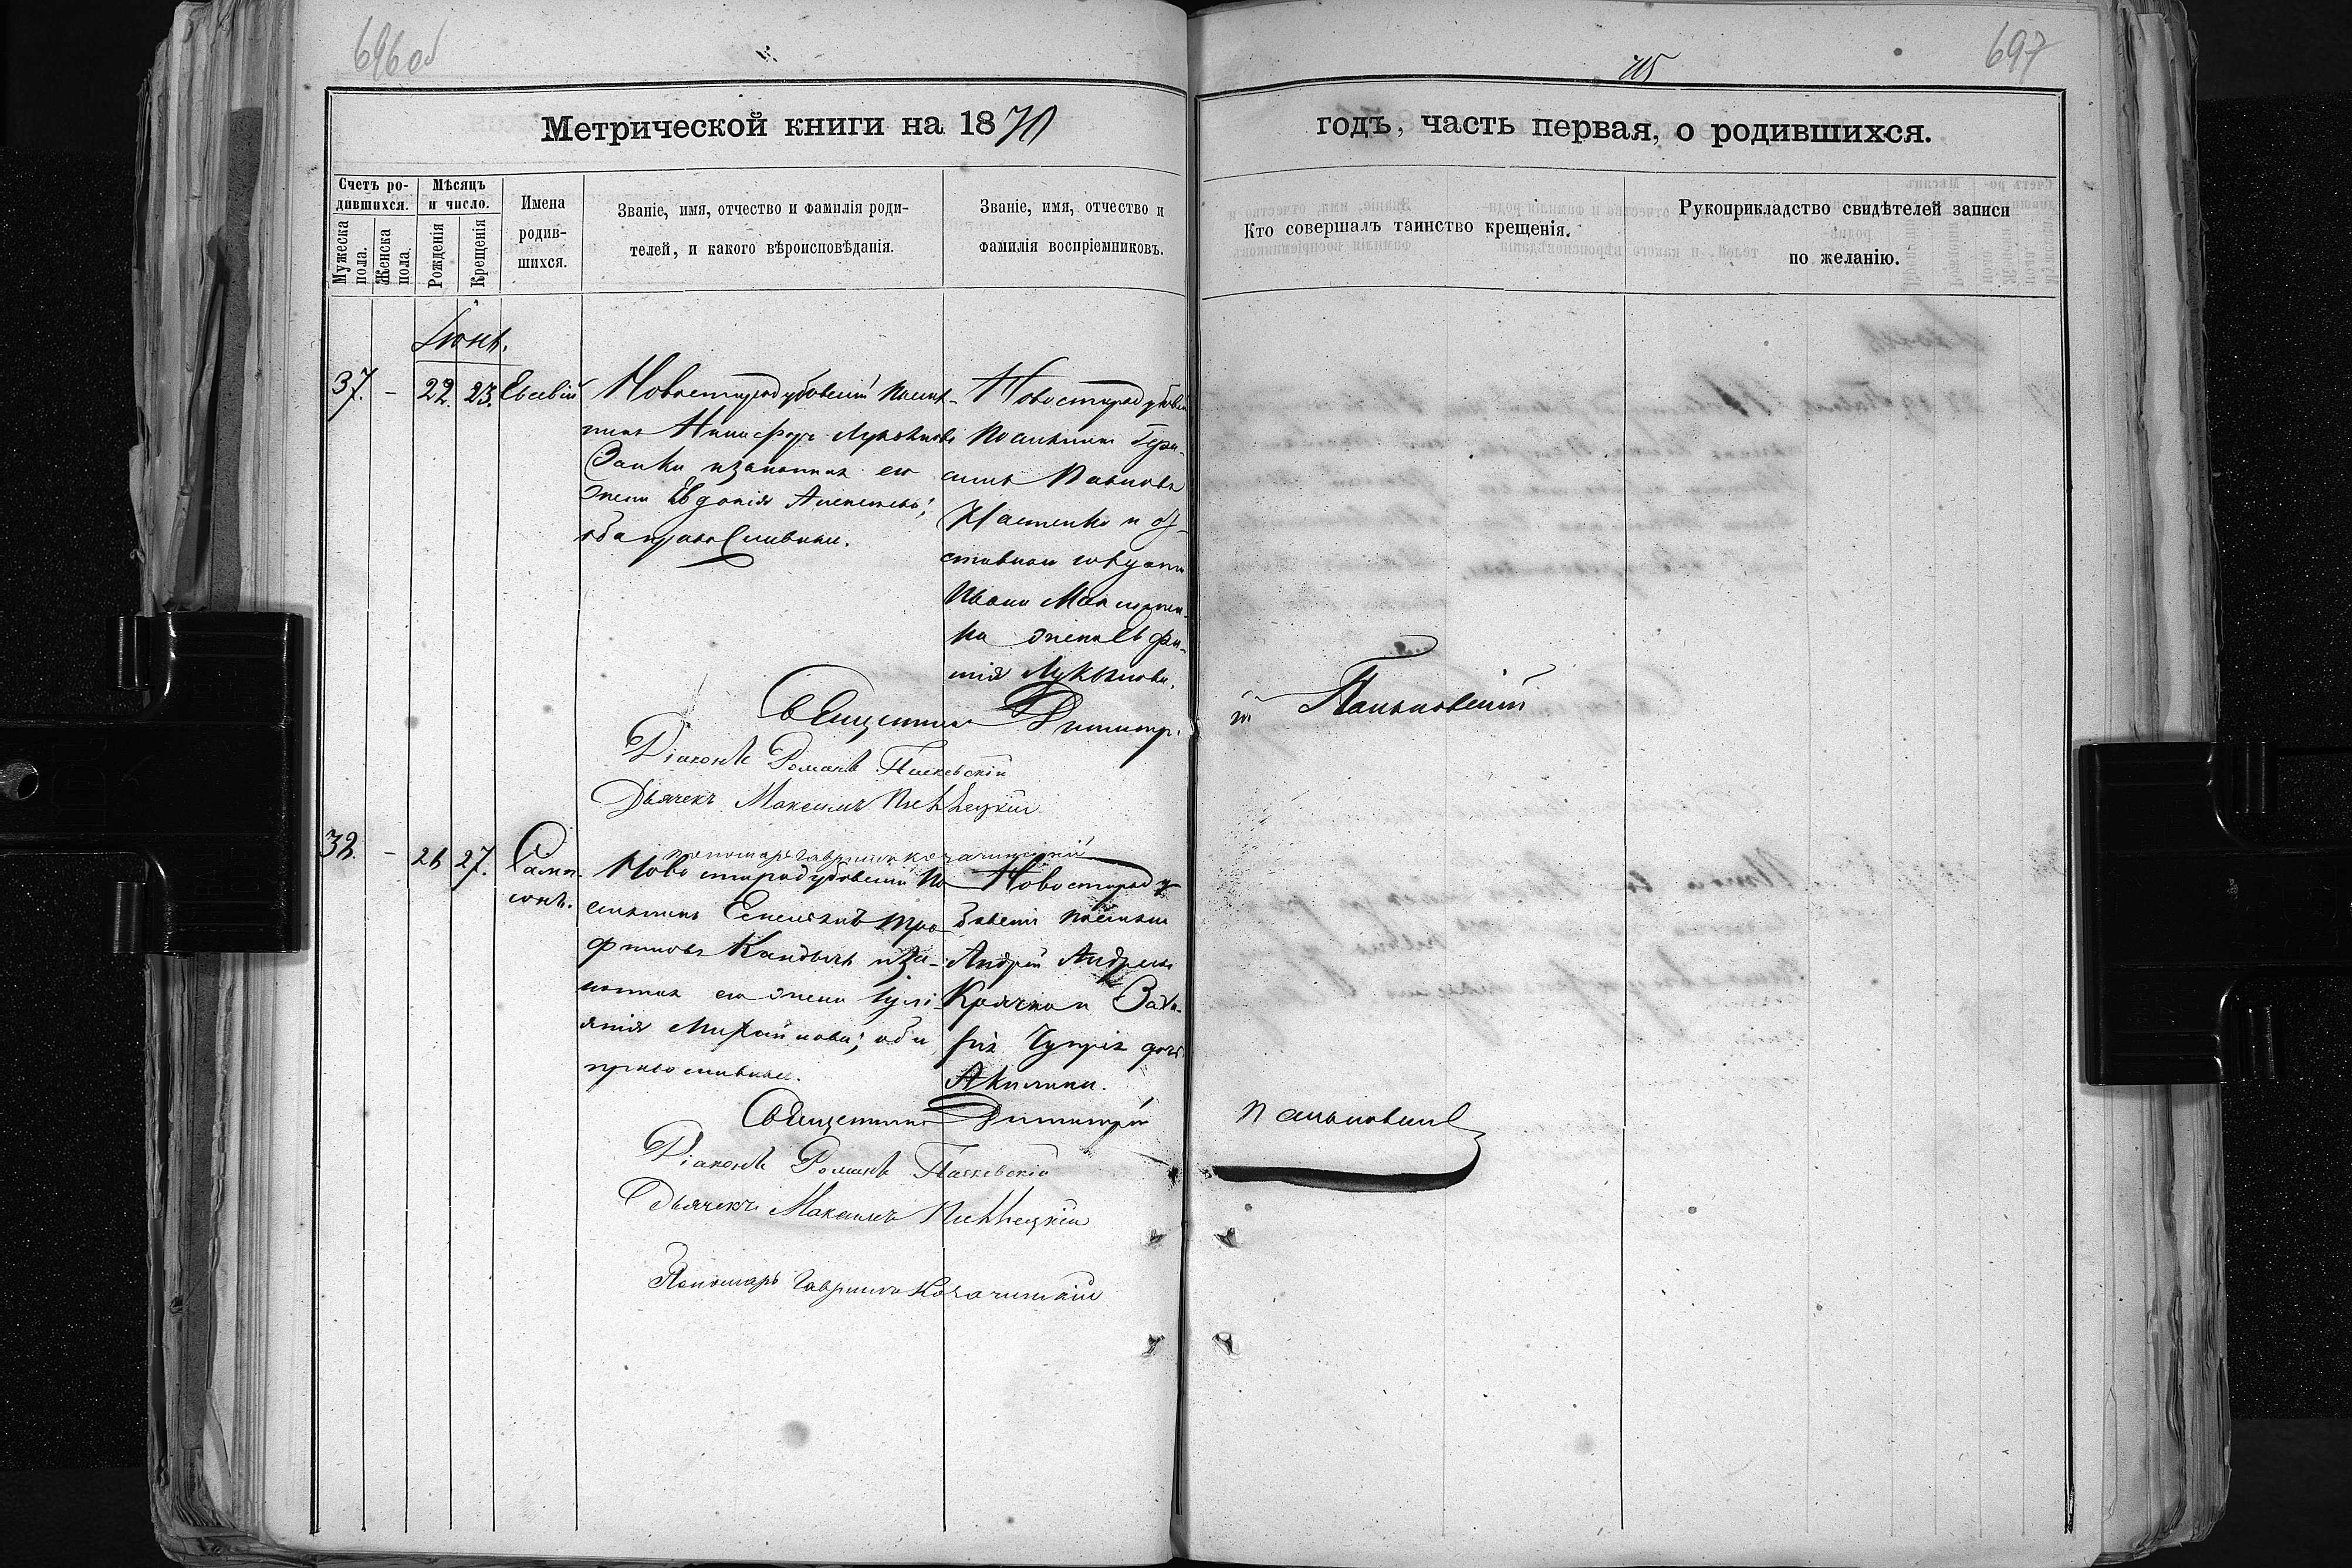 696об
697
115
Метрической книги на 1870
годъ, часть первая, о родившихся.
Счетъ родившихся.
Мужеска пола.
Женска пола.
Мѣсяцъ и число.
Рожденія
Крещенія
Имена родившихся.
Званіе, имя, отчество и фамилія родителей, и какого вѣроисповѣданія.
Званіе, имя, отчество и фамилія воспріемниковъ.
Кто совершалъ таинство крещенія.
Рукоприкладство свидѣтелей записи по желанію.
Іюнь.
37. - 22. 23. Евсевій
Новостародубовскій поселя-
нинъ Никифоръ Лукьяновъ
Заика и законная его
жена Евдокія Алексѣева;
оба православные.
Новостародубовскій
поселянинъ Гера-
симъ Павловъ
Костенко и от-
ставнаго солдата
Ивана
жена Евфи-
мія Лукьянова.
Священникъ Димитрій Паньковскій
Діаконъ Романъ Паскевскій
Дьячекъ Максимъ
пономарь Гавріилъ Козачинскій
38. - 26 27. Самп-
сонъ.
Новостародубовскій по-
селянинъ Емеліанъ Тро-
фимовъ Кандыбъ и за-
конная его жена Іулі-
анія Михайлова; оба
православные.
Новостароду-
бовскій поселянинъ
Андрей Андреевъ
Крячко и Заха-
рія Чупріа дочь
Акилина.
Священникъ Димитрій Паньковскій
Діаконъ Романъ Паскевскій
Дьячекъ Максимъ
Пономарь Гавріилъ Козачинскій